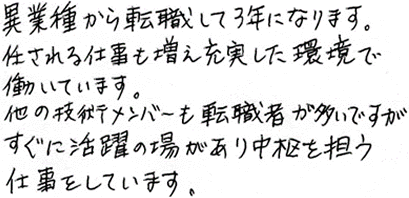 異業種から転職して3年になります。
任される仕事も増え充実した環境で
働いています。
他の技術メンバーも転職者が多いですが
すぐに活躍の場があり中枢を担う
仕事をしています。